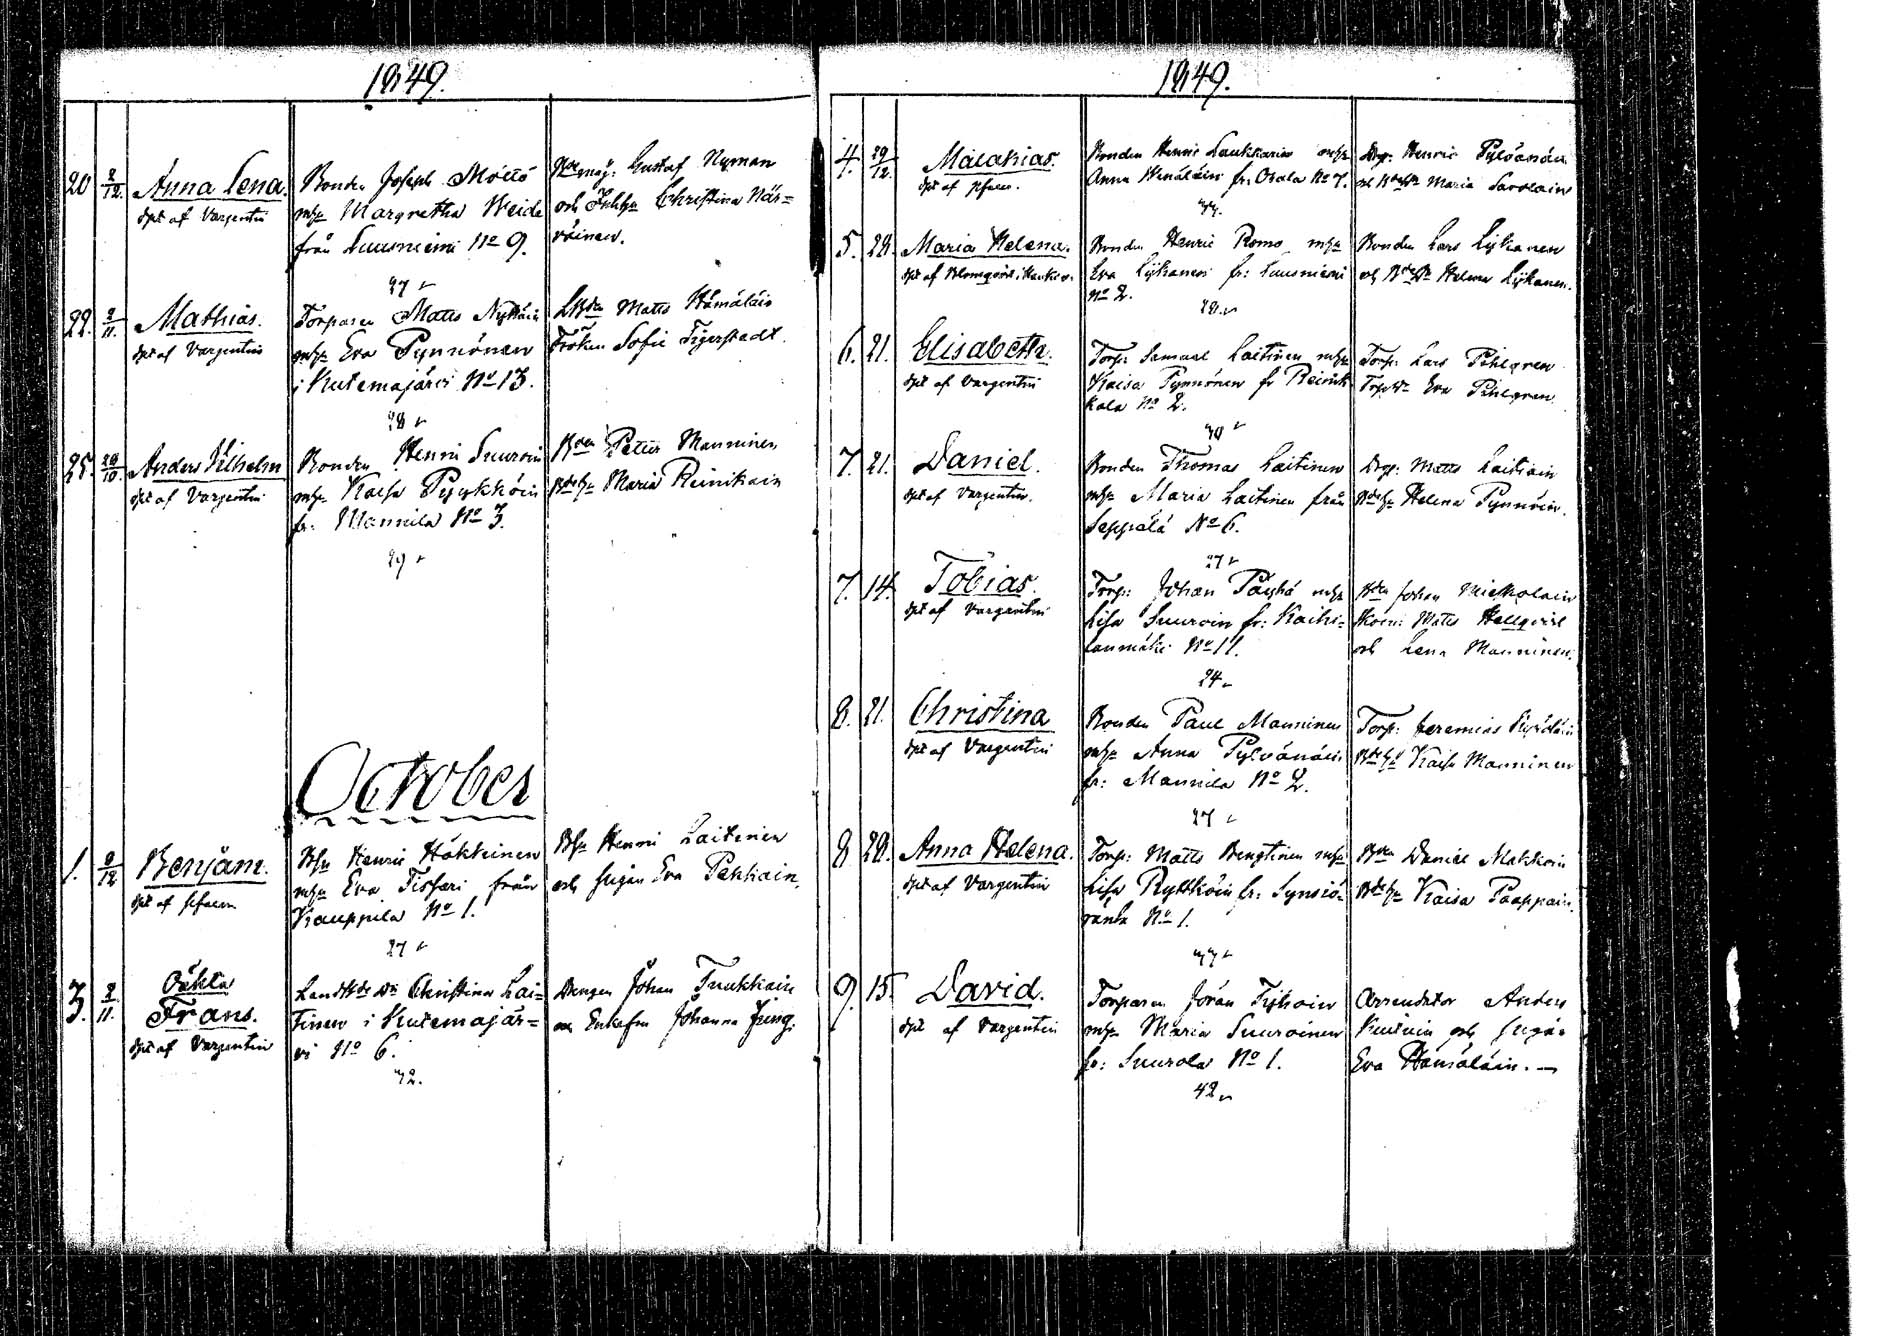 1849.
20 2/12. Anna Lena.
dpt af Vargentin
Bonden Joseph Möttö
mh:n Margretha Weide
från Suusniemi No 9.
27
Gustaf Nyman
och Christina När=
väinen.
22. 2/11. Mathias.
dpt af Vargentin
Torparen Matts
mh:n Eva Pynnönen
i Kutemajärvi No 13.
28
Matts Hämäläin
Fröken Sofie Tigerstedt.
25. 20/10. Anders Vilhelm
dpt af Vargentin
Bonden Henric Suuroin
mh:n Kaisa Pyykköin
fr: Mannila No 3.
29
Petter Manninen
Maria Reinikain
October
1. 9/12 Benjam.
dpt af
Henric Häkkinen
mh:n Eva från
Kauppila No 1.
27
Henric Laitinen
och pigan Eva Pekkain.
3. 2/11. Oäkta
Frans.
dpt af Vargentin
Christina Lai=
tinen i Kutemajär=
vi No 6.
32.
Drengen Johan Tuukkain
och Enkefru Johanna Jung.
1849.
4. 29/12. Malakias.
dpt af
Bonden Henric Laukkarin mh:n
Anna fr: Osala No 7.
37.
Drg: Henric Pylvänäin
och Maria Savolain
5. 28. Maria Helena.
dpt af Blomqvist i
Bonden Henric Romo mh:n
Eva Lyikanen fr: Suusniemi
No 2.
28.
Bonden Lars Lyikanen
och Helena Lyikanen.
6. 21. Elisabeth.
dpt af Vargentin
Torp: Samuel Laitinen mh:n
Kaisa Pynnönen fr Reinik
kala No 2.
30
Torp: Lars Pihlgren
Eva Pihlgren
7. 21. Daniel.
dpt af Vargentin.
Bonden Thomas Laitinen
mh:n Maria Laitinen från
Seppälä No 6.
27
Drg: Matts Laitiain
Helena Pynnöin.
7. 14. Tobias.
dpt af Vargentin
Torp: Johan Pöyhö mh:n
Lisa Suuroin fr: Kaihi=
lanmäki No 11.
24
Johan
Matts Hellqvist
och Lena Manninen.
8. 21. Christina
dpt af Vargentin
Bonden Paul Manninen
mh:n Anna Pylvänäin
fr: Mannila No 2.
27
Torp: Jeremias
Kaisa Manninen
8 28. Anna Helena.
dpt af Vargentin
Torp: Matts Bengtinen mh:n
Lisa Ryttköin fr: Synsiö=
ranta No 1.
37
Daniel Makkoin
Kaisa Paappain.
9. 15. David.
dpt af Vargentin
Torparen Jöran Tyihoin
mh:n Maria Suuroinen
fr: Suurola No 1.
42
Arrendator Anders
Kuitain och pigan
Eva Hämäläin. —